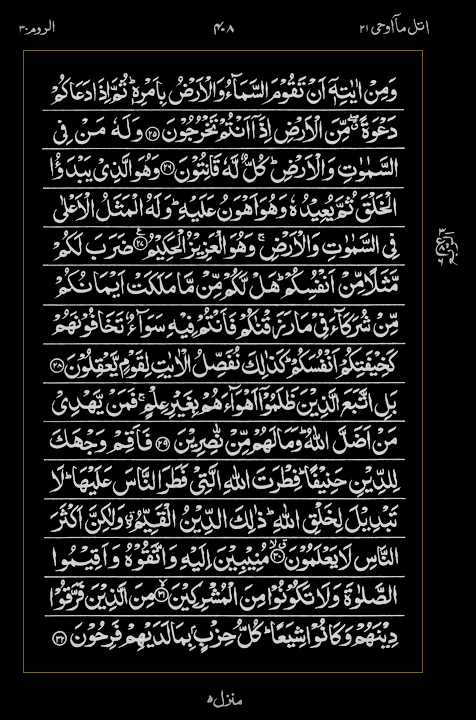 اتل مآاوحی ۲۱ ۴۰۸ الروم ۳۰
وَمِنْ اٰيٰتِهٖٓ اَنْ تَقُوْمَ السَّمَآءُ وَالْاَرْضُ بِاَمْرِهٖ ؕ ثُمَّ اِذَا دَعَاكُمْ
دَعْوَةً ۖۗ مِّنَ الْاَرْضِ اِذَآ اَنْتُمْ تَخْرُجُوْنَ ﴿۲۵﴾ وَلَهٗ مَنْ فِی
السَّمٰوٰتِ وَالْاَرْضِ ؕ كُلٌّ لَّهٗ قَانِتُوْنَ ﴿۲۶﴾ وَهُوَ الَّذِیْ يَبْدَؤُا
الْخَلْقَ ثُمَّ يُعِيْدُهٗ وَهُوَ اَهْوَنُ عَلَيْهِ ؕ وَلَهُ الْمَثَلُ الْاَعْلٰی
فِی السَّمٰوٰتِ وَالْاَرْضِ ۚ وَهُوَ الْعَزِيْزُ الْحَكِيْمُ ﴿۲۷﴾ ضَرَبَ لَكُمْ
مَّثَلًا مِّنْ اَنْفُسِكُمْ ؕ هَلْ لَّكُمْ مِّنْ مَّا مَلَكَتْ اَيْمَانُكُمْ
مِّنْ شُرَكَآءَ فِیْ مَا رَزَقْنٰكُمْ فَاَنْتُمْ فِيْهِ سَوَآءٌ تَخَافُوْنَهُمْ
كَخِيْفَتِكُمْ اَنْفُسَكُمْ ؕ كَذٰلِكَ نُفَصِّلُ الْاٰيٰتِ لِقَوْمٍ يَّعْقِلُوْنَ ﴿۲۸﴾
بَلِ اتَّبَعَ الَّذِيْنَ ظَلَمُوْٓا اَهْوَآءَهُمْ بِغَيْرِ عِلْمٍ ۚ فَمَنْ يَّهْدِیْ
مَنْ اَضَلَّ اللّٰهُ ؕ وَمَا لَهُمْ مِّنْ نّٰصِرِيْنَ ﴿۲۹﴾ فَاَقِمْ وَجْهَكَ
لِلدِّيْنِ حَنِيْفًا ؕ فِطْرَتَ اللّٰهِ الَّتِیْ فَطَرَ النَّاسَ عَلَيْهَا ؕ لَا
تَبْدِيْلَ لِخَلْقِ اللّٰهِ ؕ ذٰلِكَ الدِّيْنُ الْقَيِّمُ ۙۗ وَلٰكِنَّ اَكْثَرَ
النَّاسِ لَا يَعْلَمُوْنَ ﴿۳۰﴾ مُنِيْبِيْنَ اِلَيْهِ وَاتَّقُوْهُ وَاَقِيْمُوا
الصَّلٰوةَ وَلَا تَكُوْنُوْا مِنَ الْمُشْرِكِيْنَ ﴿۳۱﴾ مِنَ الَّذِيْنَ فَرَّقُوْا
دِيْنَهُمْ وَكَانُوْا شِيَعًا ؕ كُلُّ حِزْبٍۭ بِمَا لَدَيْهِمْ فَرِحُوْنَ ﴿۳۲﴾
منزل ۵